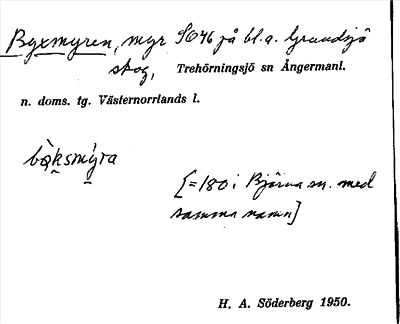 Byxmyren, myr SO46 på bl.a. Grundsjö
skog, Trehörningsjö sn Ångermanl.
n. doms. tg. Västernorrlands l.
bòksmýra
[=180 i Björna sn. med
samma namn]
H. A. Söderberg 1950.